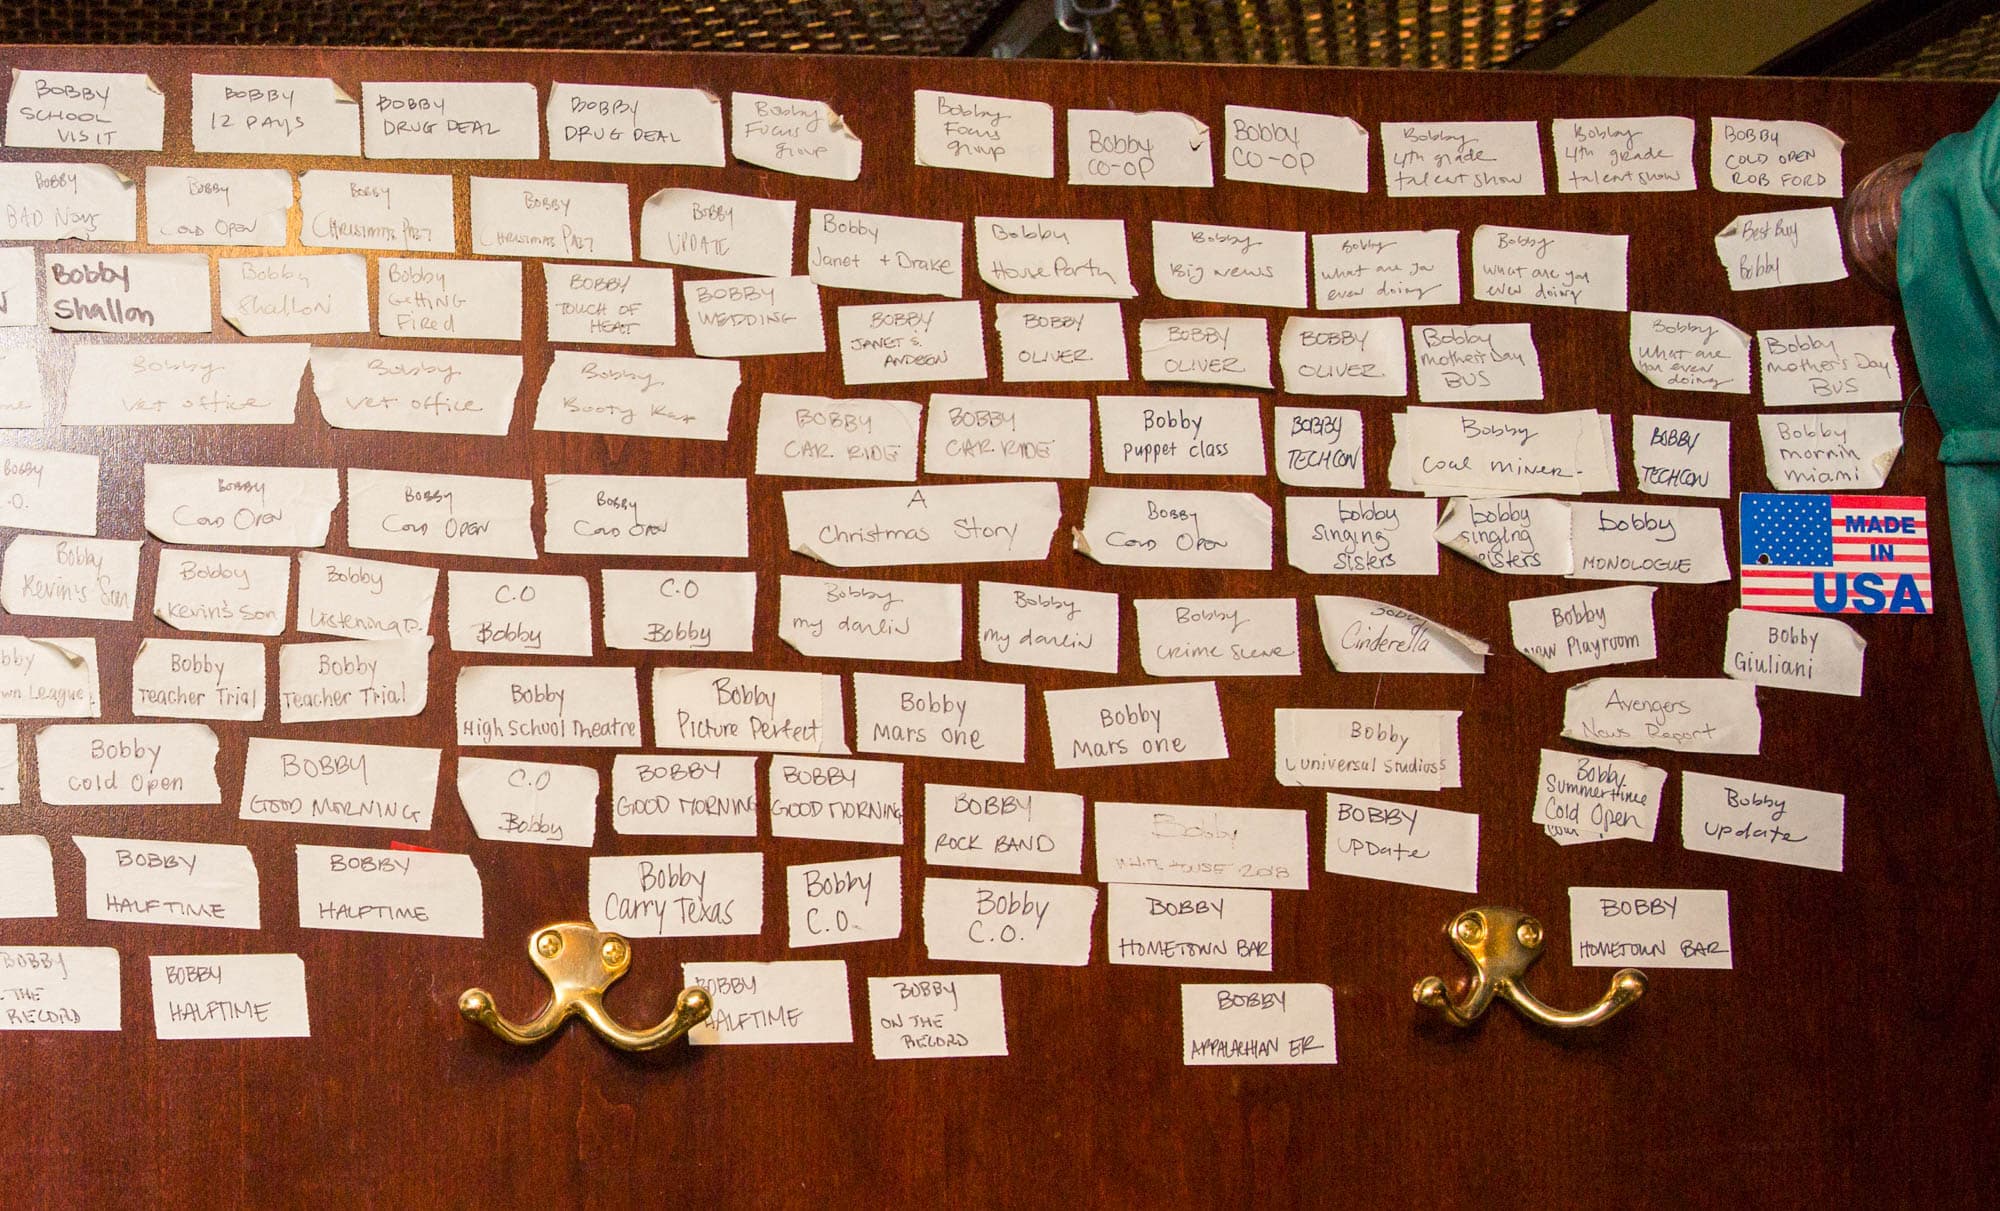 BOBBY
SCHOOL
VISIT
BOBBY
12 DAYS
BOBBY
DRUG DEAL
BOBBY
DRUG DEAL
Bobby
Focus
group
Bobby
Focus
group
Bobby
CO-OP
Bobby
CO-OP
Bobby
4th grade
talent show
Bobby
4th grade
talent show
BOBBY
COLD OPEN
ROB FORD
BOBBY
BAD
BOBBY
COLD OPEN
BOBBY
CHRISTMAS PAST
BOBBY
CHRISTMAS PAST
BOBBY
UPDATE
Bobby
Janet + Drake
Bobby
House Party
Bobby
Big News
Bobby
what are ya
even doing
Bobby
what are you
even doing
Best Buy
Bobby
Bobby
Shallon
Bobby
Shallon
Bobby
Getting
Fired
BOBBY
TOUCH OF
HEAT
BOBBY
WEDDING
BOBBY
JANET &
ANDEEN
BOBBY
OLIVER
BOBBY
OLIVER
BOBBY
OLIVER
Bobby
mother's Day
BUS
Bobby
what are
you even
doing
Bobby
mother's Day
BUS
Bobby
vet office
Bobby
vet office
Bobby
Booty
BOBBY
CAR RIDE
BOBBY
CAR RIDE
Bobby
puppet class
BOBBY
TECHCON
Bobby
coal miner
BOBBY
TECHCON
Bobby
mornin
miami
BOBBY
.O.
BOBBY
COLD OPEN
BOBBY
COLD OPEN
BOBBY
COLD OPEN
A
Christmas Story
BOBBY
COLD OPEN
bobby
singing
sisters
bobby
singing
sisters
bobby
MONOLOGUE
MADE
IN
USA
Bobby
Kevin's Son
Bobby
Kevin's Son
Bobby
Listening P.
C.O
Bobby
C.O
Bobby
Bobby
my darlin
Bobby
my darlin
Bobby
crime scene
Bobby
Cinderella
Bobby
New Playroom
Bobby
Giuliani
bby
wn League
Bobby
Teacher Trial
Bobby
Teacher Trial
Bobby
High School Theatre
Bobby
Picture Perfect
Bobby
Mars one
Bobby
Mars one
Bobby
universal studios
Avengers
News Report
Bobby
Cold Open
BOBBY
GOOD MORNING
C.O
Bobby
BOBBY
GOOD MORNING
BOBBY
GOOD MORNING
BOBBY
ROCK BAND
Bobby
WHITE HOUSE 2018
BOBBY
UPDate
Bobby
Summertime
Cold Open
Bobby
update
BOBBY
HALFTIME
BOBBY
HALFTIME
Bobby
Carry Texas
Bobby
C.O.
Bobby
C.O.
BOBBY
HOMETOWN BAR
BOBBY
HOMETOWN BAR
BOBBY
THE
RECORD
BOBBY
HALFTIME
BOBBY
HALFTIME
BOBBY
ON THE
RECORD
BOBBY
APPALACHIAN ER